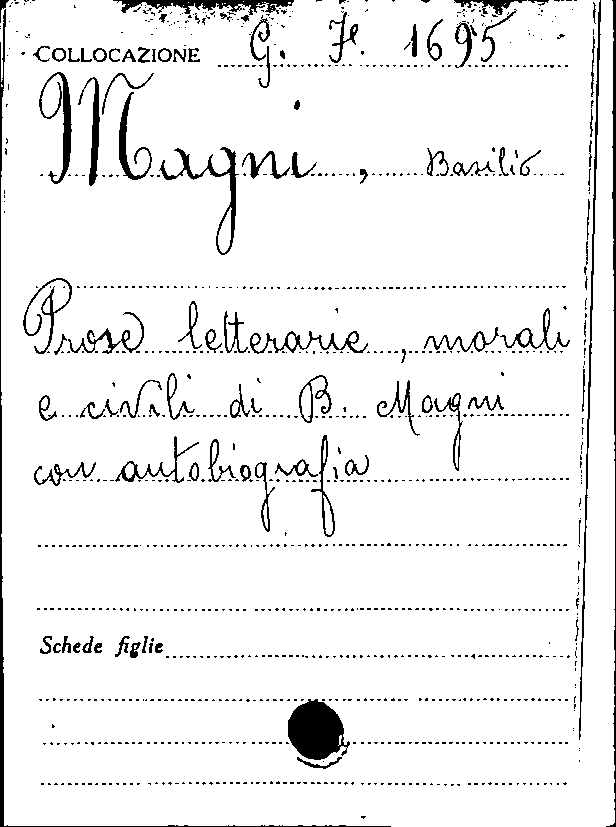 COLLOCAZIONE G. F. 1695
Magni, Basilio
Prose letterarie, morali
e civili di B. Magni
con autobiografia
Schede figlie